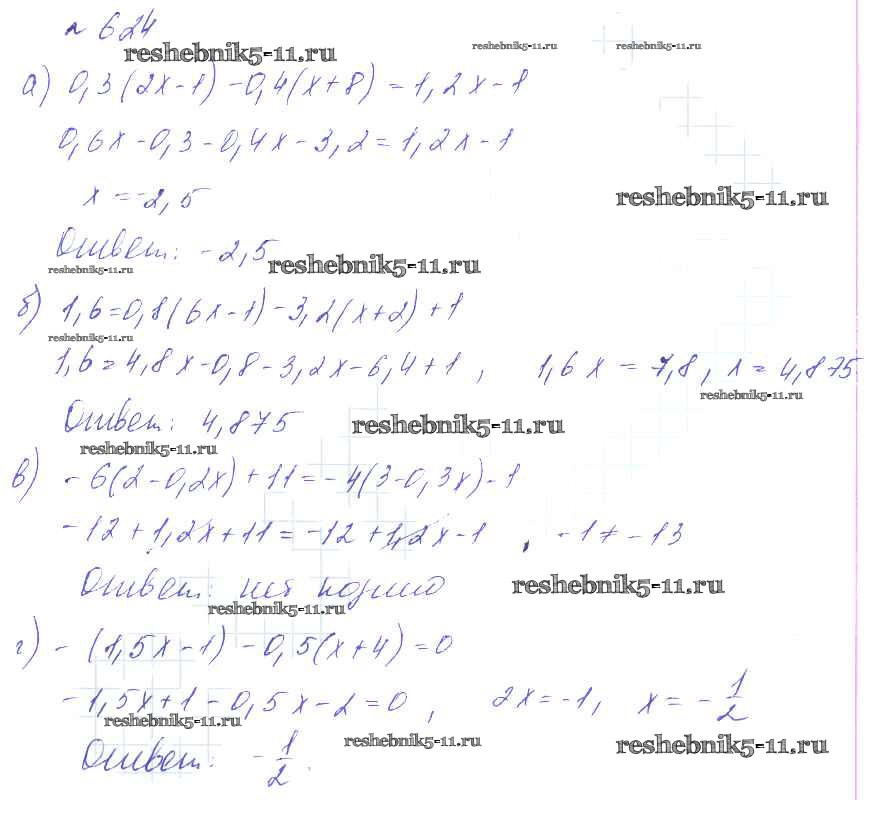 № 624
reshebnik5-11.ru reshebnik5-11.ru reshebnik5-11.ru
а) 0,3(2x-1) -0,4(x+8) = 1,2x-1
0,6x-0,3-0,4x-3,2=1,2x-1
x = -2,5 reshebnik5-11.ru
Ответ: -2,5
reshebnik5-11.ru reshebnik5-11.ru
б) 1,6=0,8(6x-1)-3,2(x+2)+1
reshebnik5-11.ru
1,6=4,8x-0,8-3,2x-6,4+1 , 1,6x = 7,8, x= 4,875
reshebnik5-11.ru
Ответ: 4,875 reshebnik5-11.ru
reshebnik5-11.ru
в) -6(2-0,2x)+11=-4(3-0,3x)-1
-12+1,2x+11=-12+1,2x-1 , -1≠-13
Ответ: нет reshebnik5-11.ru
reshebnik5-11.ru
г) -(1,5x-1)-0,5(x+4)=0
-1,5x+1-0,5x-2=0 , 2x=-1, x= -1/2
reshebnik5-11.ru
reshebnik5-11.ru reshebnik5-11.ru
Ответ: -1/2.